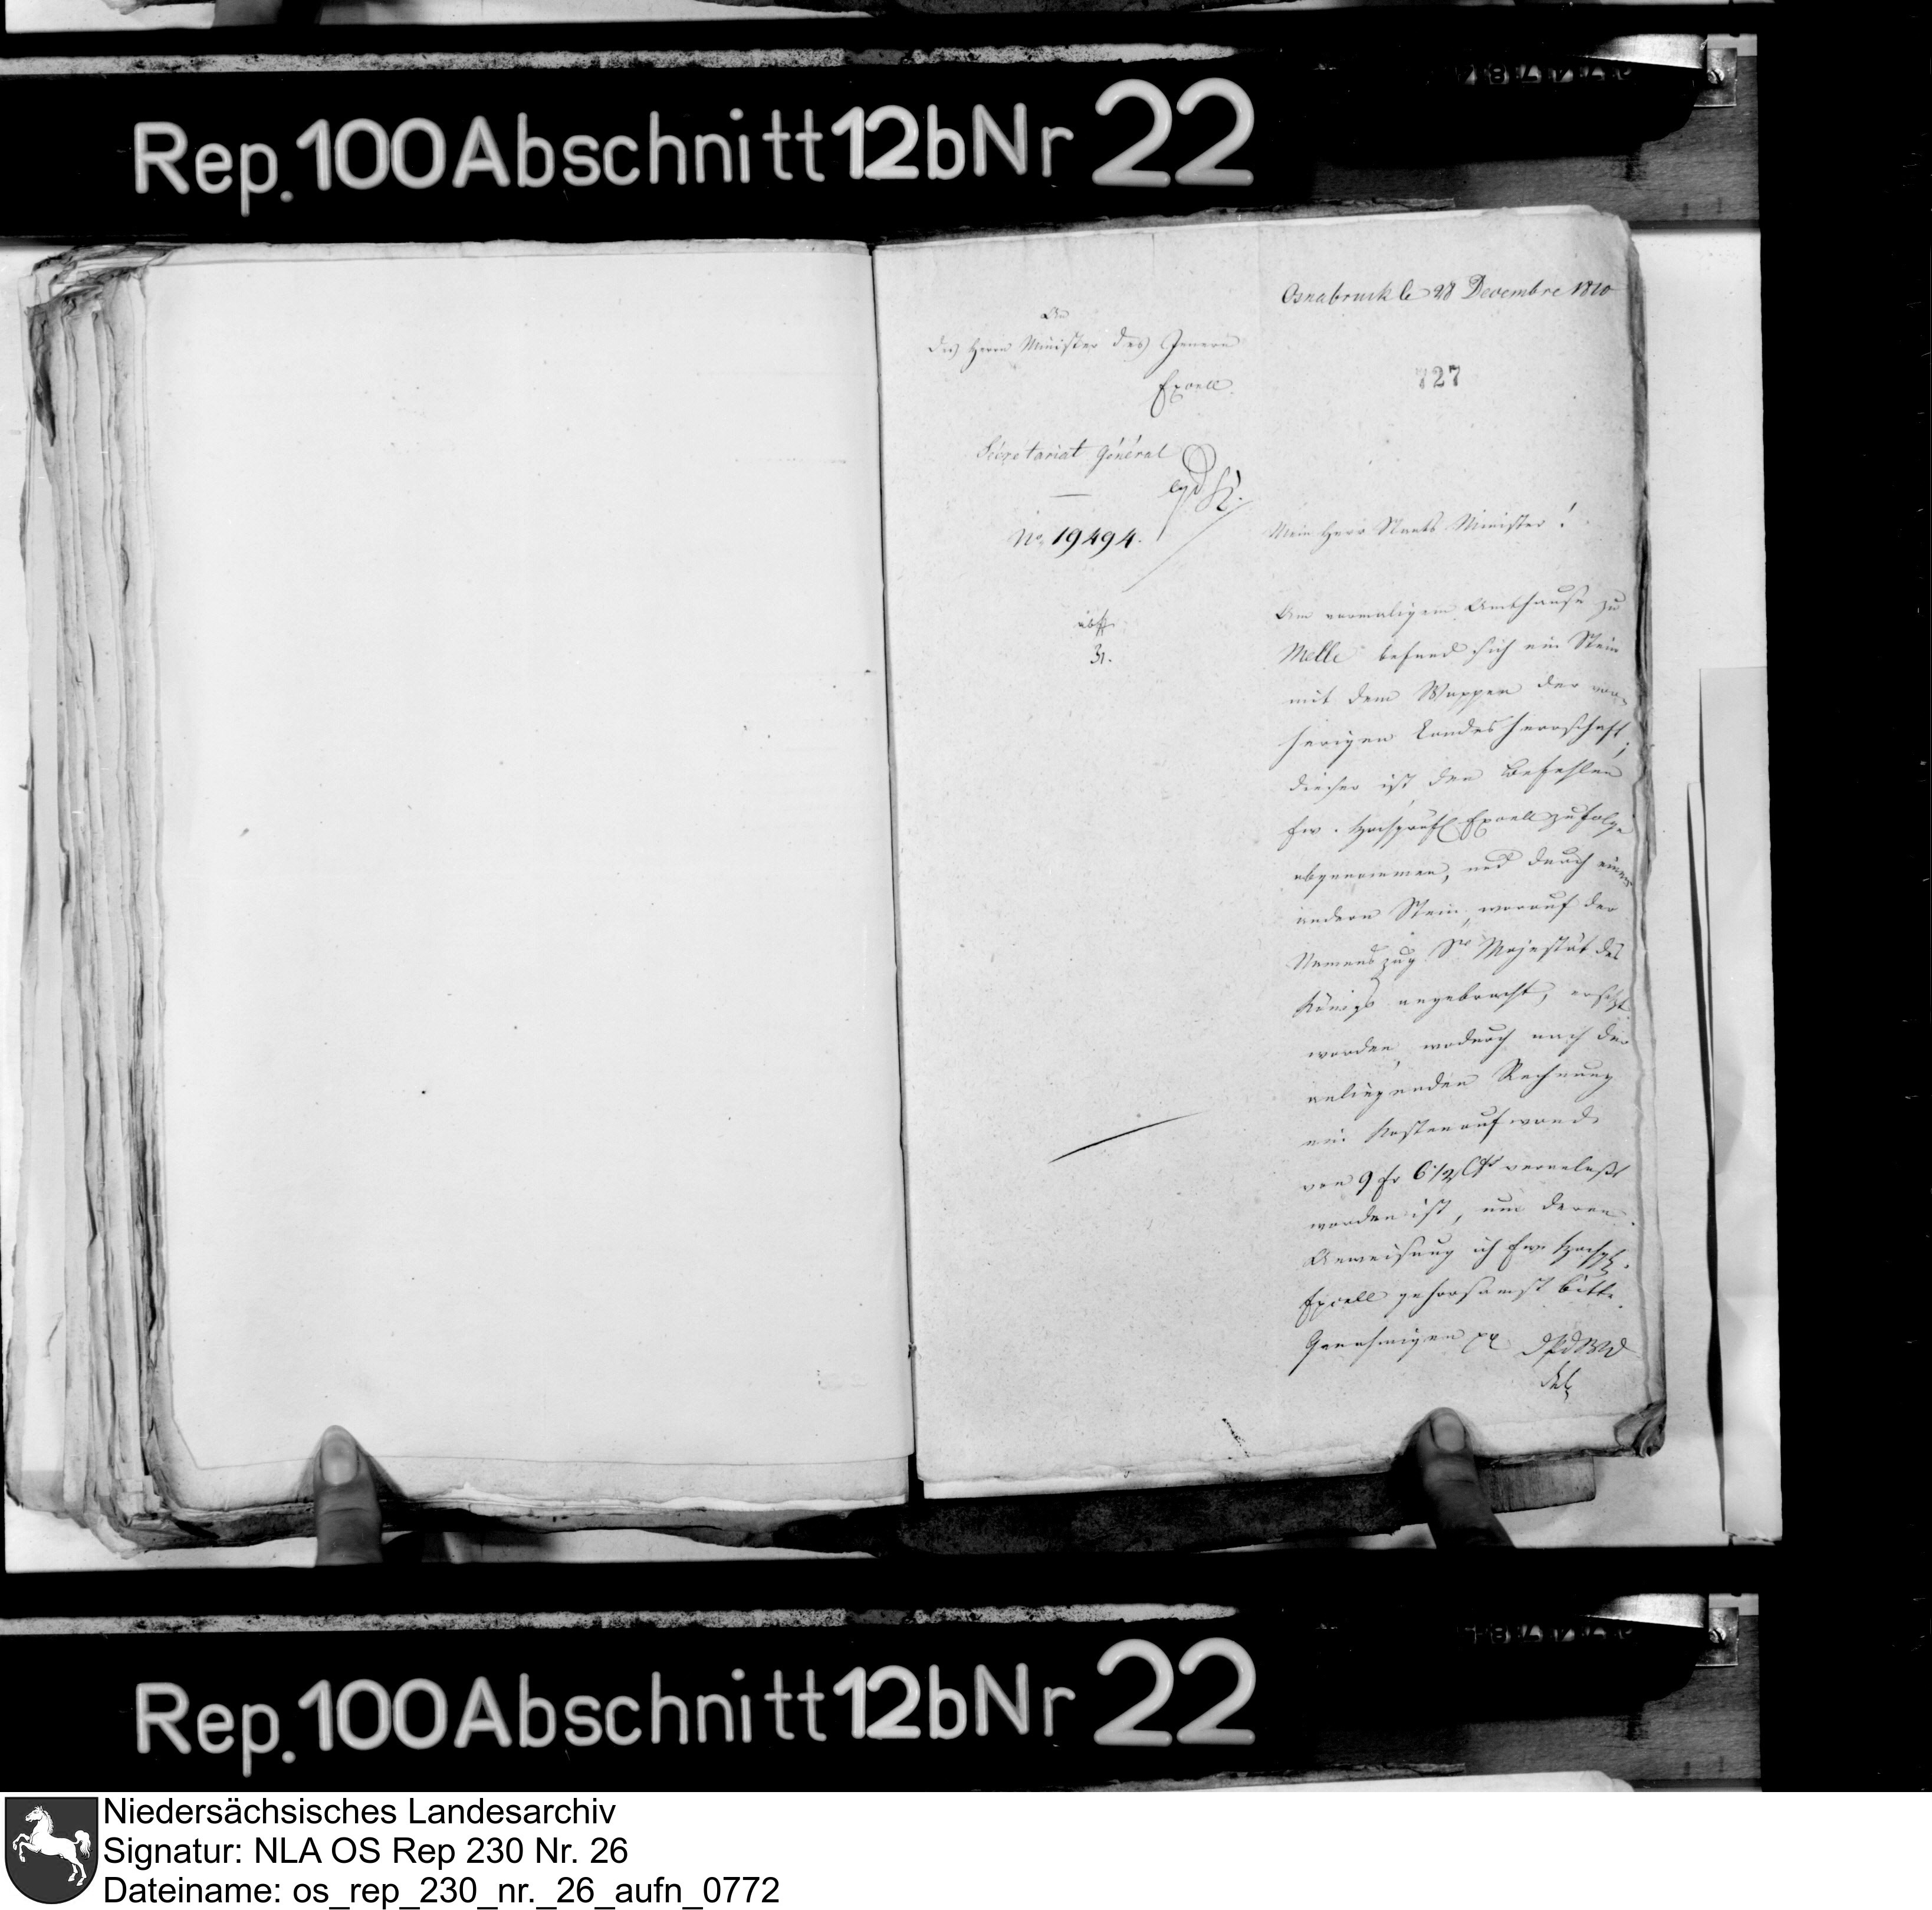 Rep. 100 Abschnitt 12b Nr 22
Osnabruck le 28 Decembre 1810
An
Des Herrn Minister des Innern
Excell.
727
Sécrétariat Général
No. 19494.
Mein Herr Staats Minister!
31.
Am vormaligem Amthause zu
Melle befand sich ein Stein
mit dem Wappen der vor-
herigen Landesherrschaft;
dieser ist den Befehlen
Ew. Hochpreisl. Excell zufolge
abgenommen, und durch einen
andern Stein, worauf der
Namenszug Sr Majestät des
Königs angebracht, ersetzt
worden, wodurch nach der
anliegenden Rechnung
ein Kostenaufwand
von 9 fr 61/2 Cts veranlaßt
worden ist, um deren
Anweisung ich Ew Hochpl.
Excell gehorsamst bitte.
Genehmigen pp
Rep. 100 Abschnitt 12b Nr 22
Niedersächsisches Landesarchiv
Signatur: NLA OS Rep 230 Nr. 26
Dateiname: os_rep_230_nr._26_aufn_0772